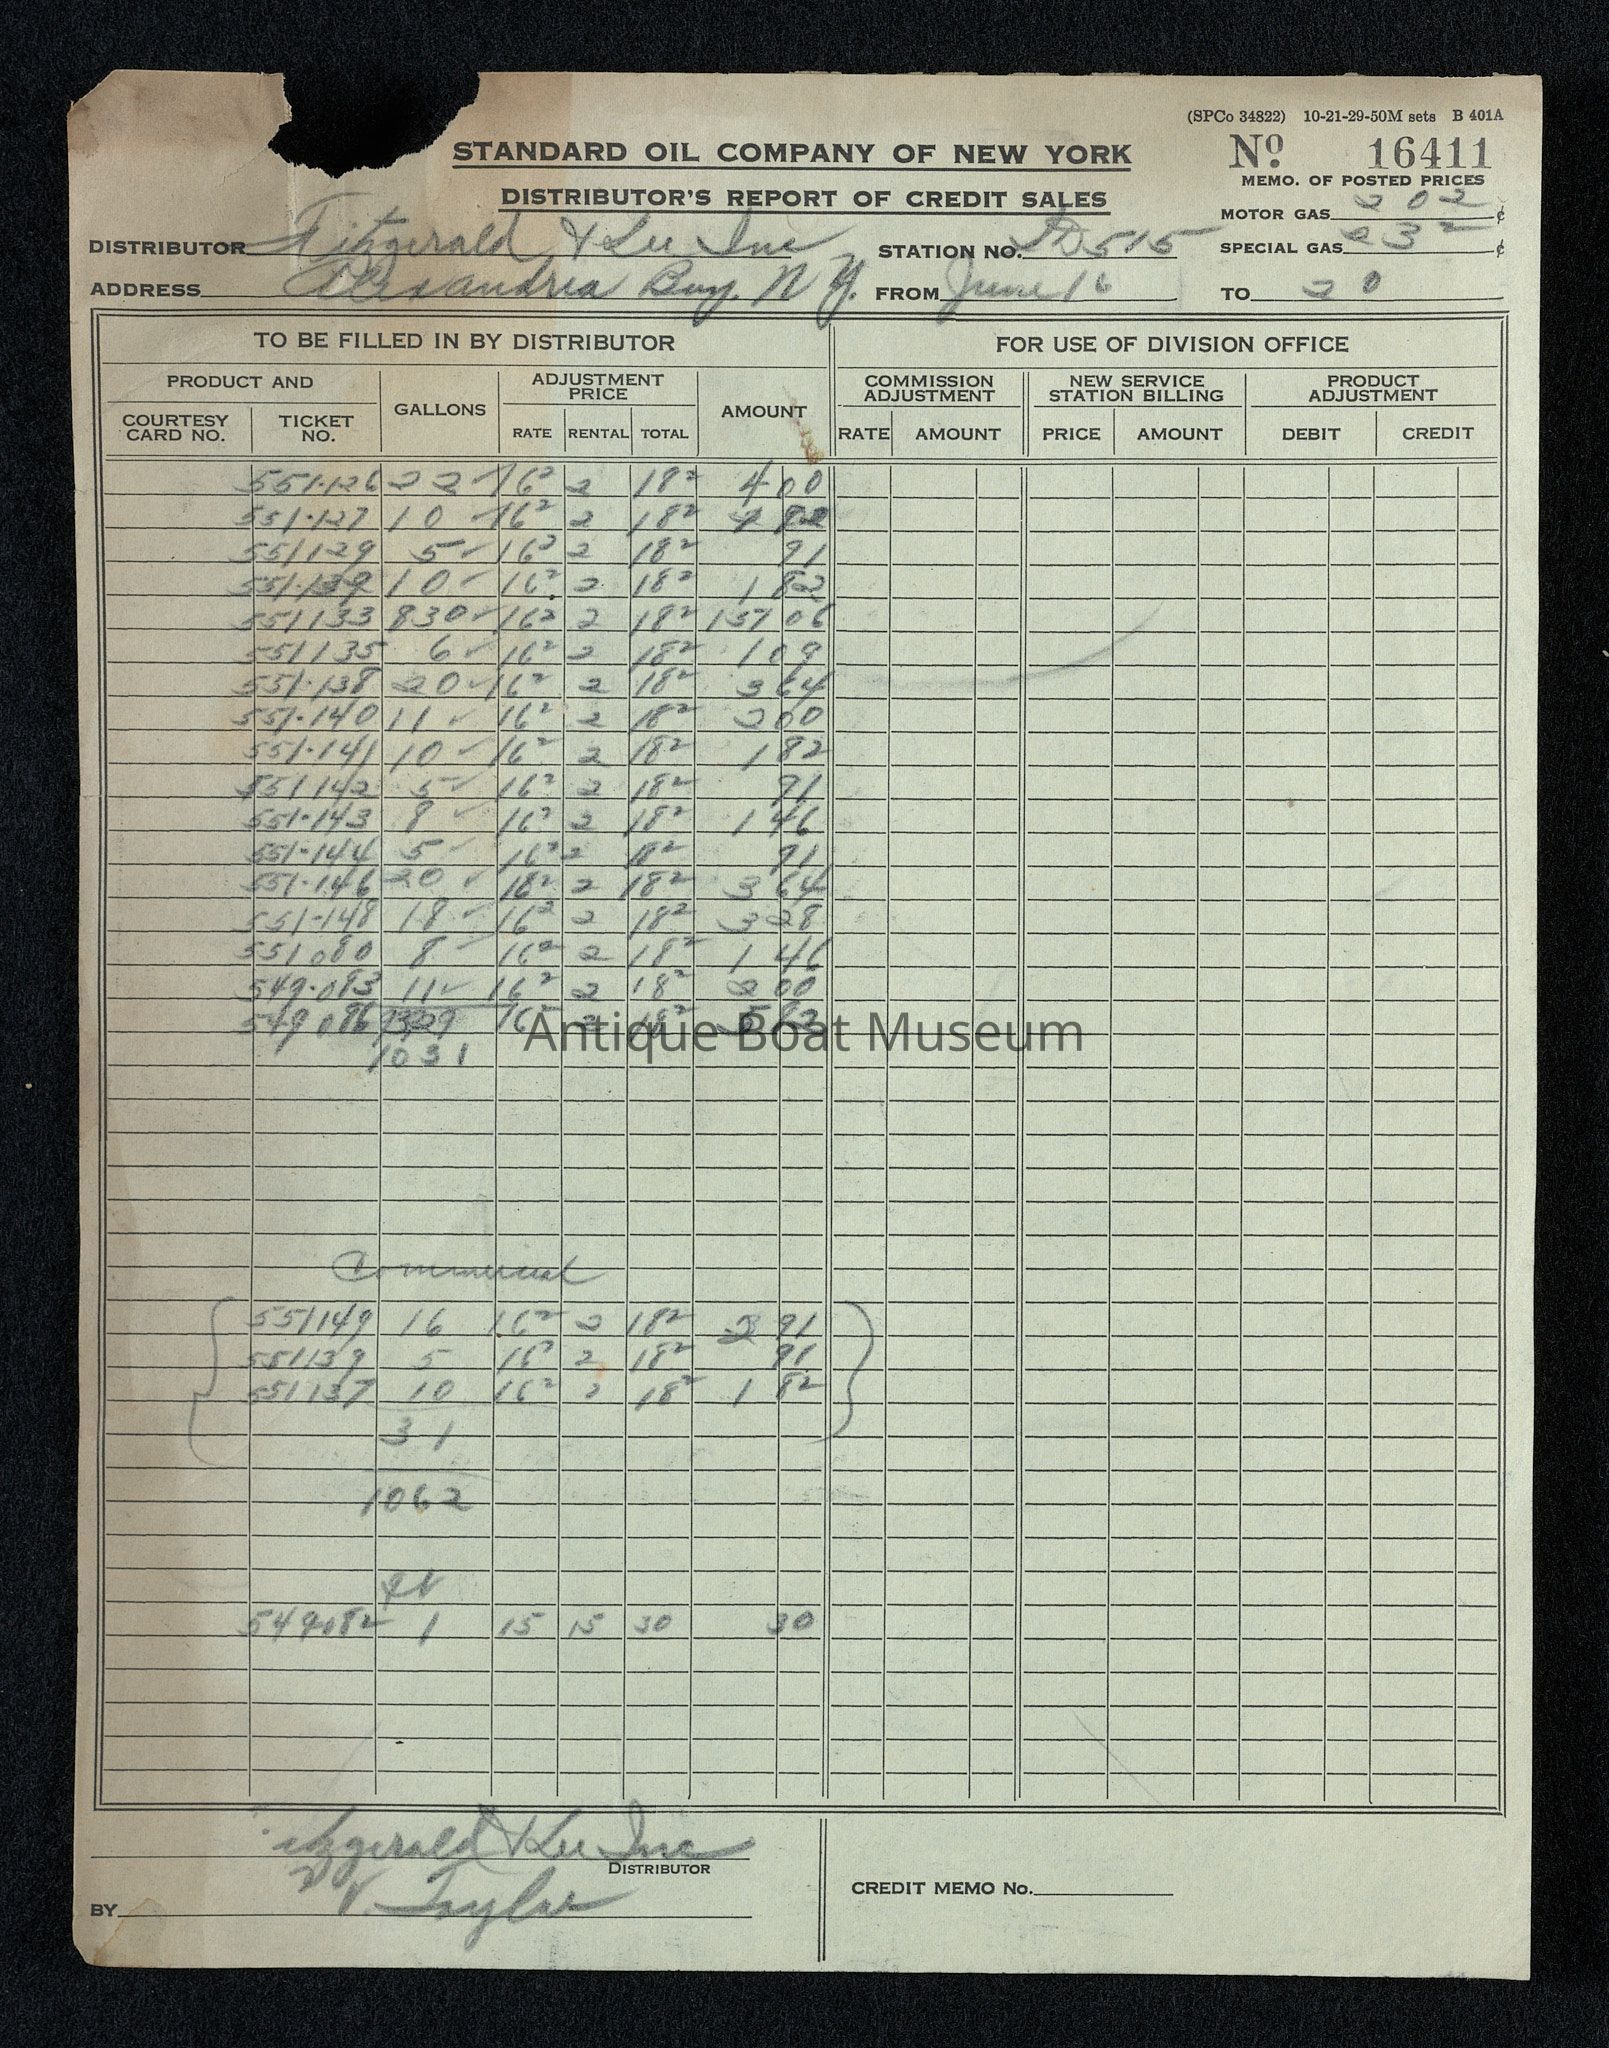 (SPCo 34822) 10-21-29-50M sets B 401A
STANDARD OIL COMPANY OF NEW YORK
No 16411
MEMO. OF POSTED PRICES
DISTRIBUTOR'S REPORT OF CREDIT SALES
MOTOR GAS 20 2 ¢
DISTRIBUTOR Fitzgerald & Lee Inc STATION NO. SD515 SPECIAL GAS 23 2 ¢
ADDRESS Alexandria Bay. N Y. FROM June 16 TO 20
TO BE FILLED IN BY DISTRIBUTOR FOR USE OF DIVISION OFFICE
PRODUCT AND GALLONS ADJUSTMENT PRICE AMOUNT COMMISSION ADJUSTMENT NEW SERVICE STATION BILLING PRODUCT ADJUSTMENT
COURTESY CARD NO. TICKET NO. RATE RENTAL TOTAL RATE AMOUNT PRICE AMOUNT DEBIT CREDIT
551·126 22 ✓ 16² 2 18² 4 00
551·127 10 ✓ 16² 2 18² 1 82
551129 5 ✓ 16² 2 18² 91
551·132 10 ✓ 16² 2 18² 1 82
551133 830 ✓ 16² 2 18² 151 06
551135 6 ✓ 16² 2 18² 1 09
551·138 20 ✓ 16² 2 18² 3 64
551·140 11 ✓ 16² 2 18² 2 00
551·141 10 ✓ 16² 2 18² 1 82
551142 5 ✓ 16² 2 18² 91
551·143 8 ✓ 16² 2 18² 1 46
551·144 5 ✓ 16² 2 18² 91
551·146 20 ✓ 16² 2 18² 3 64
551·148 18 ✓ 16² 2 18² 3 28
551080 8 ✓ 16² 2 18² 1 46
549·083 11 ✓ 16² 2 18² 2 00
549086 16² 2 18²
Antique Boat Museum
1031
Commercial
551149 16 16² 2 18² 2 91
551139 5 16² 2 18² 91
551137 10 16² 2 18² 1 82
31
1062
qt
549082 1 15 15 30 30
Fitzgerald & Lee Inc
DISTRIBUTOR
CREDIT MEMO No.
BY V. Taylor